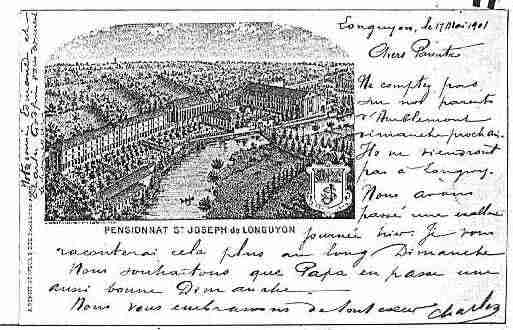 Longuyon, le 17 Mai 1901
Chers Parents
Ne comptez pas
sur nos parents
d'Amblemont
dimanche prochain.
Ils ne viendront
pas à Longuy.
Nous avons
passé une
journée hier. Je vous
raconterai cela plus au long Dimanche
Nous souhaitons que Papa en passe une
aussi bonne Dimanche.
Nous vous embrassons de tout cœur Charles
PENSIONNAT ST JOSEPH de LONGUYON